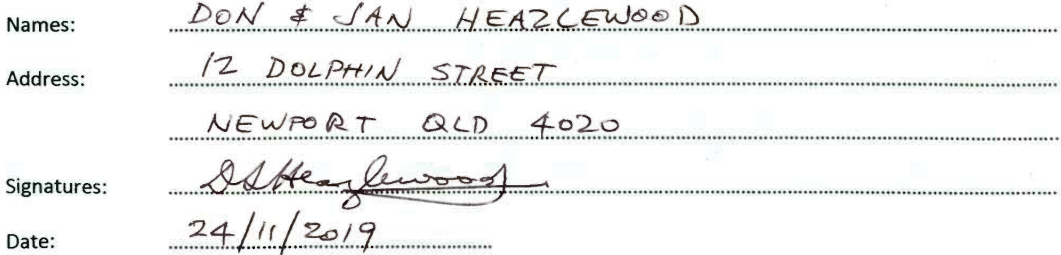 Names: DON & JAN HEAZLEWOOD
Address: 12 DOLPHIN STREET
NEWPORT QLD 4020
Signatures: DSHeazlewood
Date: 24/11/2019